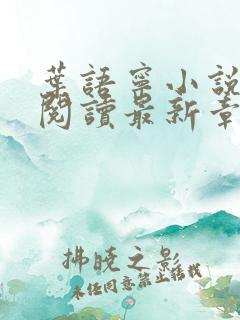 葉語寧小說
閱讀最新章
拂曉之影
未经同意禁止转载